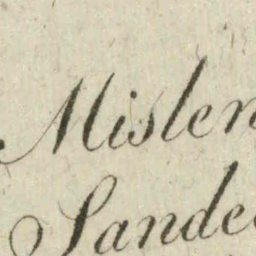 Misler
Sande